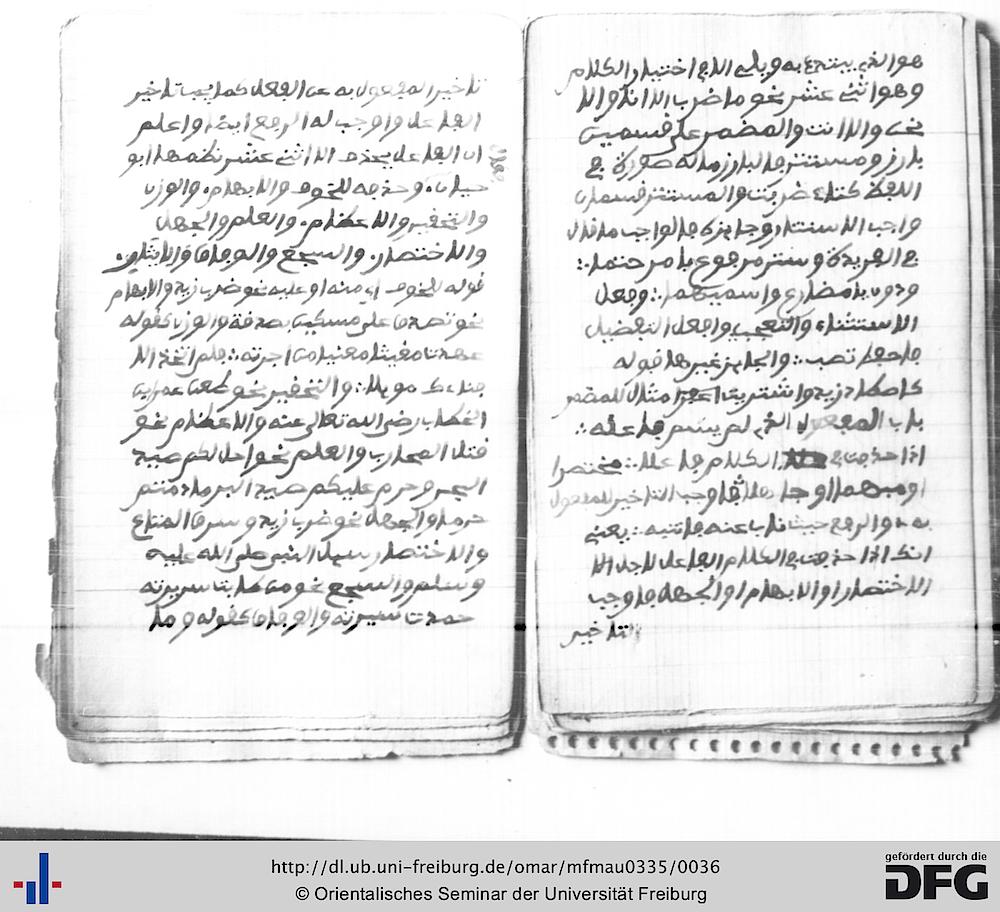 هو الذي يبتدئ به ويلي إلا في اختيار الكلام
وهو اثني عشر نحو ما ضرب إلا أنا وإلا
نحن وإلا أنت والمضمر على قسمين
بارز ومستتر فالبارز ما له صورة في
اللفظ كتاء ضربت والمستتر قسمان
واجب الاستتار وجائزه فالواجب ما قال
في الفريدة وستر مرفوع بأمر حتما:
ودون يا مضارع واسميهما: وفعل
الاستثناء والتعجب وأفعل التفضيل
فاحفظ تصب: والجائز غيرها قوله
زيد واشتريت مثال للمضمر
باب المفعول الذي لم يسم فاعله:
إذا حذفت في الكلام فاعلا: مختصرا
أو مبهما أو جاهلا فأوجب التأخير للمفعول
به والرفع حيث ناب عنه فانتبه: يعني
أنك إذا حذفت في الكلام الفاعل لأجل
الاختصار أو الإبهام أو الجهل فأوجب
التأخير
تأخير المفعول به عن الفعل كما يجب تأخير
الفاعل وأوجب له الرفع أيضا واعلم
أن الفاعل يحذف لاثني عشر نظمها أبو
حيان. وحذفه للخوف والإبهام. والوزن
والتحقير والإعظام. والعلم والجهل
والاختصار. والسجع والوفاق والإيثار.
قوله للخوف أي منه أو عليه نحو ضرب زيد والإبهام
نحو تصدق على مسكين بصدقة والوزن كقوله
والتحقير نحو طعن عمر ابن
الخطاب رضي الله تعالى عنه والإعظام نحو
قتل المحارب والعلم نحو أحل لكم صيد
البحر وحرم عليكم صيد البر ما دمتم
حرما والجهل نحو ضرب زيد وسرق المتاع
والاختصار سيل النبي صلى الله عليه
وسلم والسجع نحو من طابت سريرته
حمدت سيرته والوفاق كقوله وما
http://dl.ub.uni-freiburg.de/omar/mfmau0335/0036
© Orientalisches Seminar der Universität Freiburg
gefördert durch die
DFG